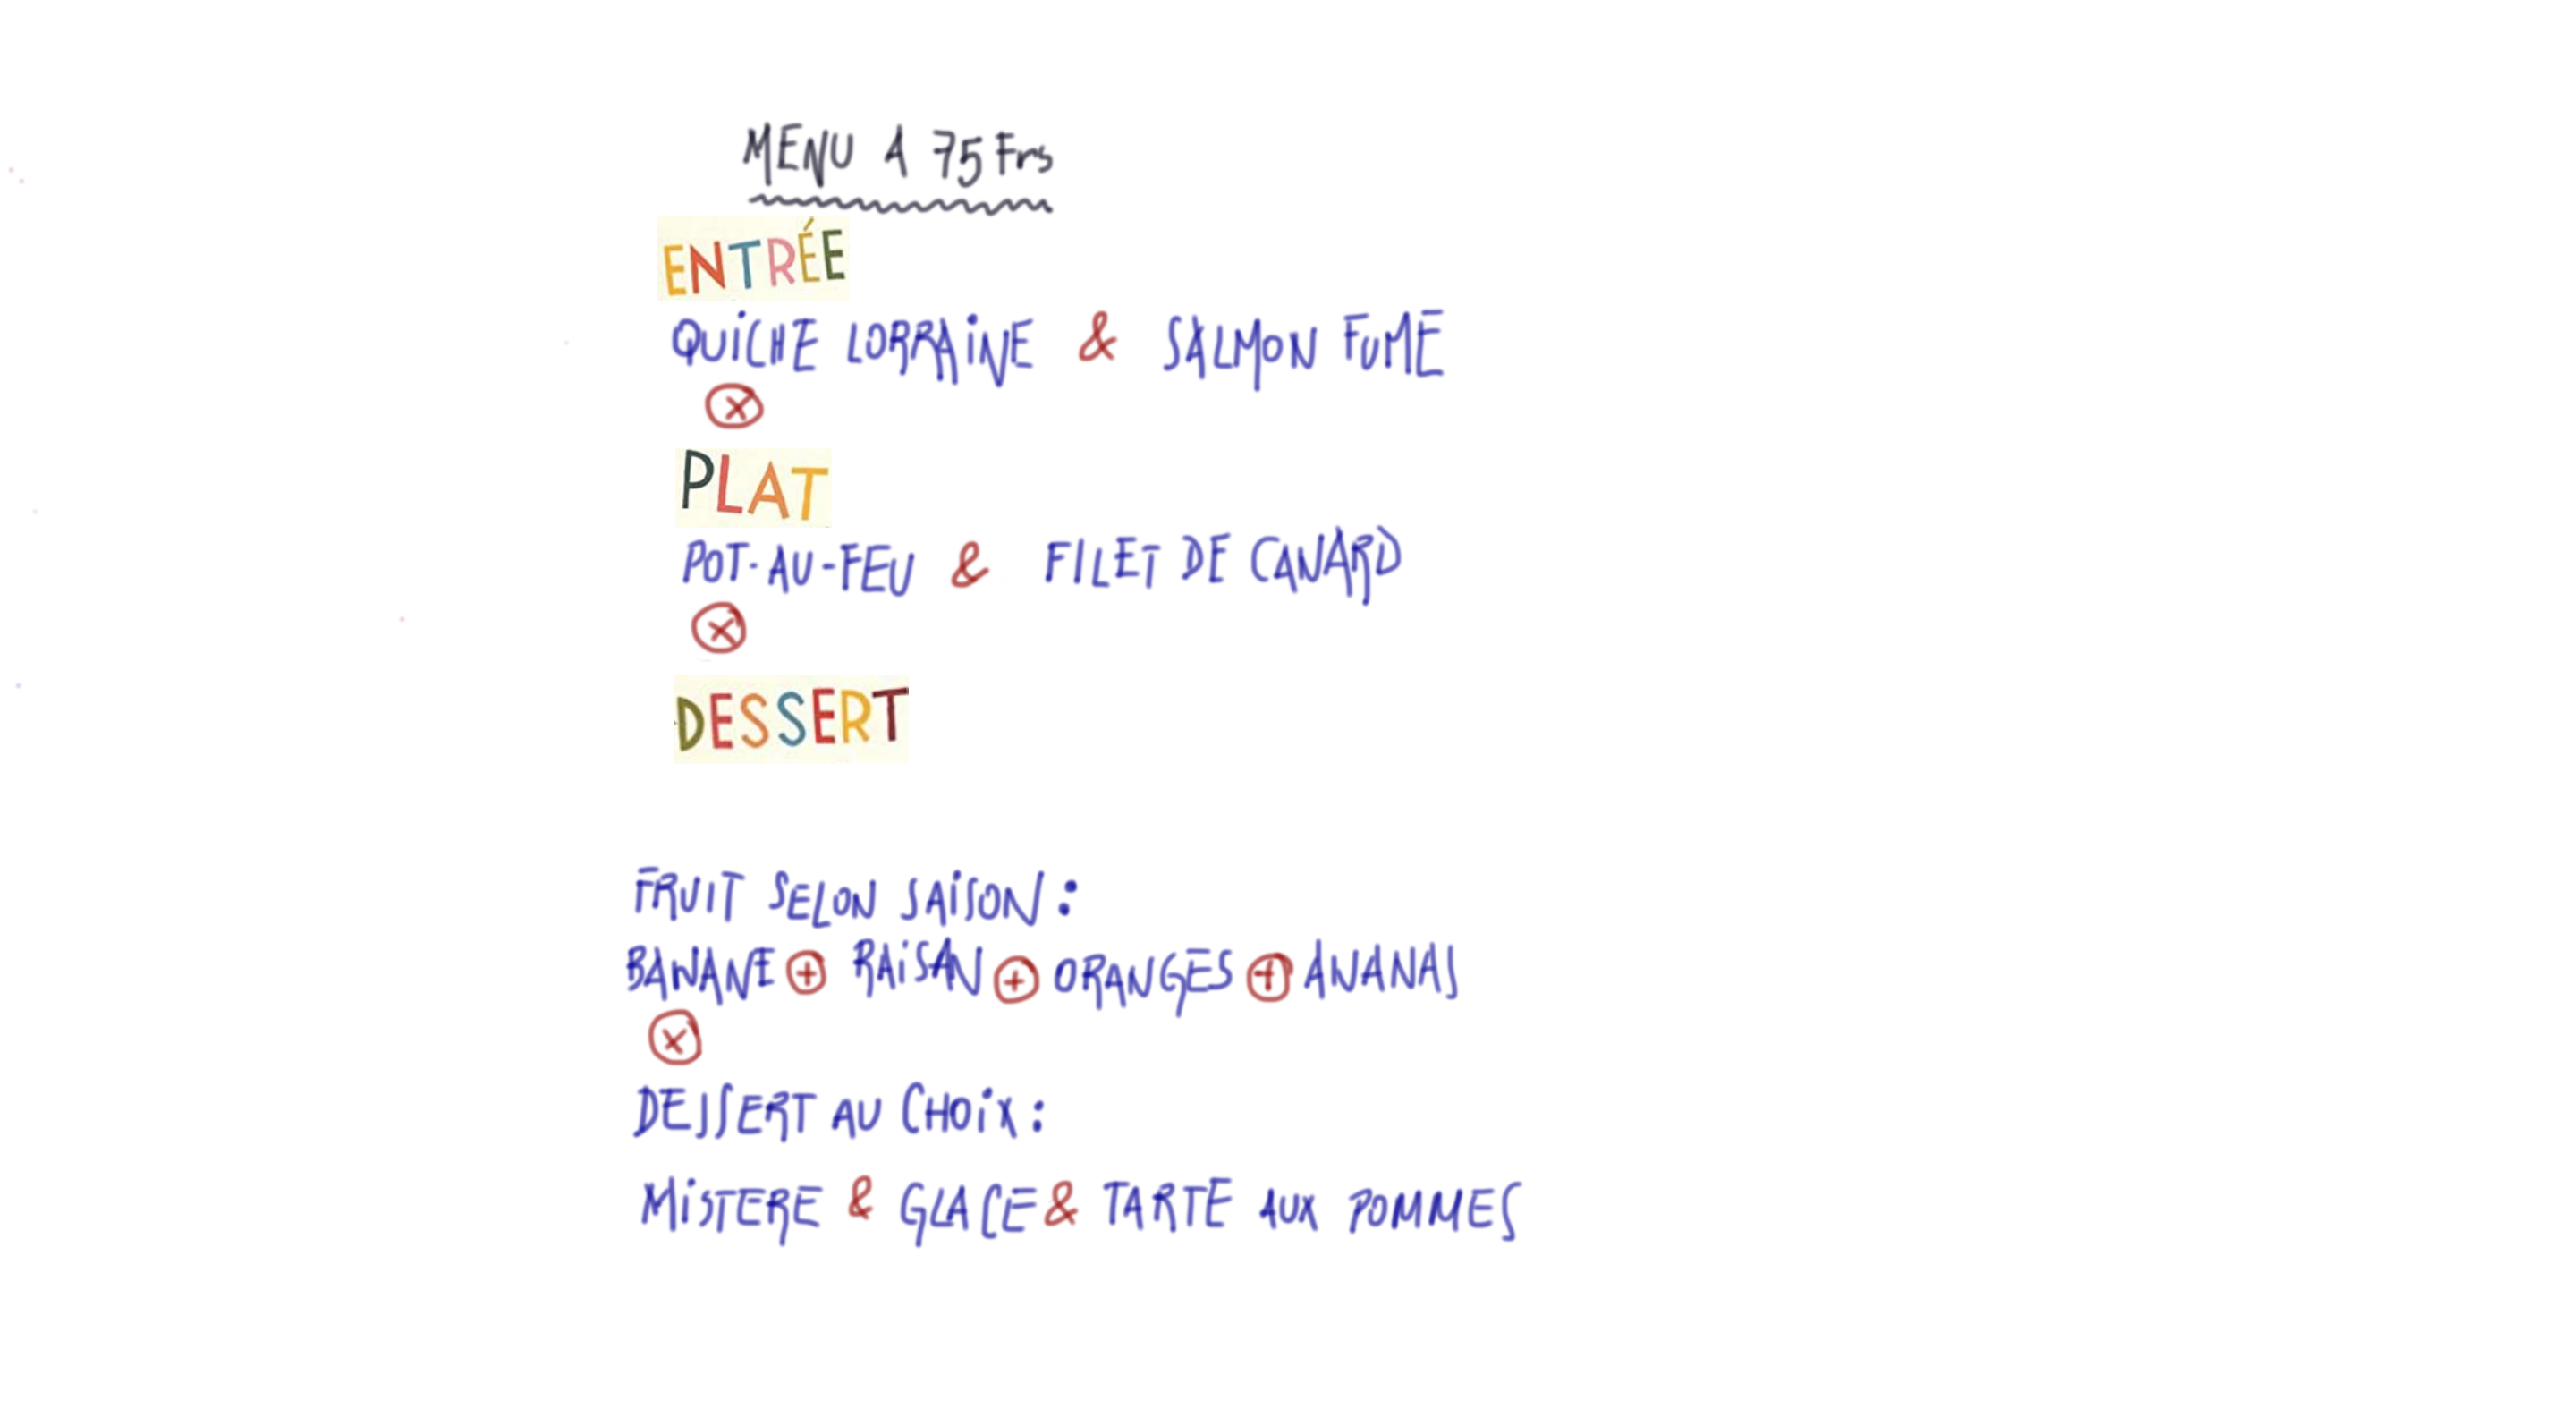 MENU A 75 Frs
ENTRÉE
QUiCHE LORRAiNE & SALMON FUME
⊗
PLAT
POT-AU-FEU & FILET DE CANARD
⊗
DESSERT
FRUIT SELON SAiSON :
BANANE ⊕ RAiSAN ⊕ ORANGES ⊕ ANANAS
⊗
DESSERT AU CHOiX :
MiSTERE & GLACE & TARTE AUX POMMES